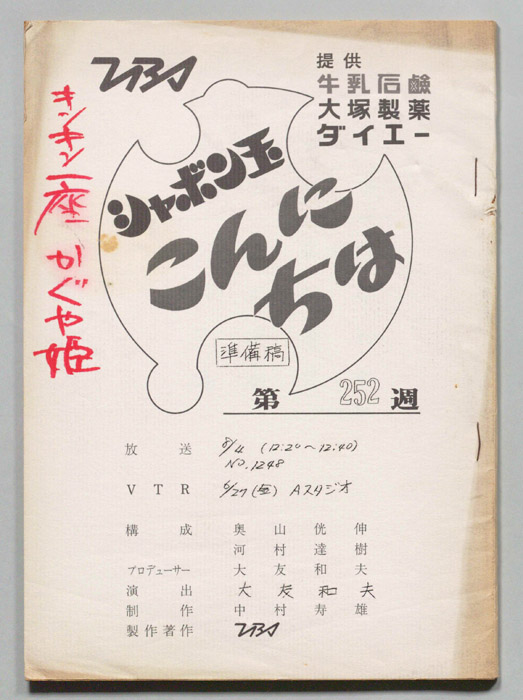 TBS
提供
牛乳石鹸
大塚製薬
ダイエー
キンキン一座 かぐや姫
シャボン玉
こんに
ちは
準備稿
第252週
放送 8/4 (12:20〜12:40)
NO.1248
VTR 6/27 Aスタジオ
構成 奥山侊伸
河村達樹
プロデューサー 大友和夫
演出 大友和夫
制作 中村寿雄
製作著作 TBS